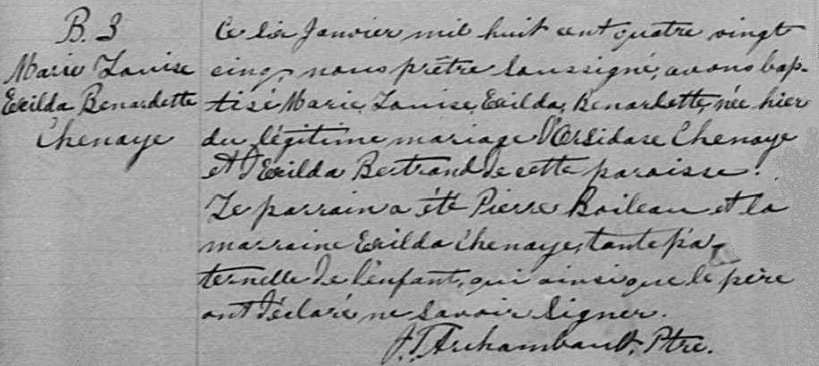 B. 3
Marie Louise
Exilda Benardette
Chenaye
Ce six Janvier mil huit cent quatre vingt
cinq, nous prêtre soussigné, avons bap-
tisé Marie, Louise, Exilda, Benardette, née hier
du légitime mariage d'Orsidase Chenaye
et d'Exilda Bertrand de cette paroisse.
Le parrain a été Pierre Boileau et la
marraine Exilda Chenaye, tante pa-
ternelle de l'enfant, qui ainsi que le père
ont déclaré ne savoir signer.
J. T. Archambault. Ptre.